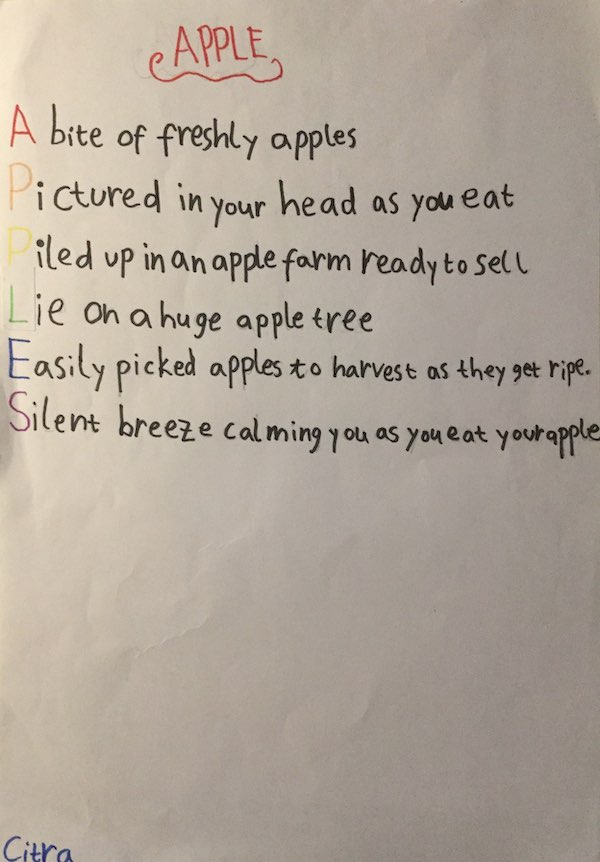 APPLE
A bite of freshly apples
Pictured in your head as you eat
Piled up in an apple farm ready to sell
Lie on a huge apple tree
Easily picked apples to harvest as they get ripe.
Silent breeze calming you as you eat your apple
Citra